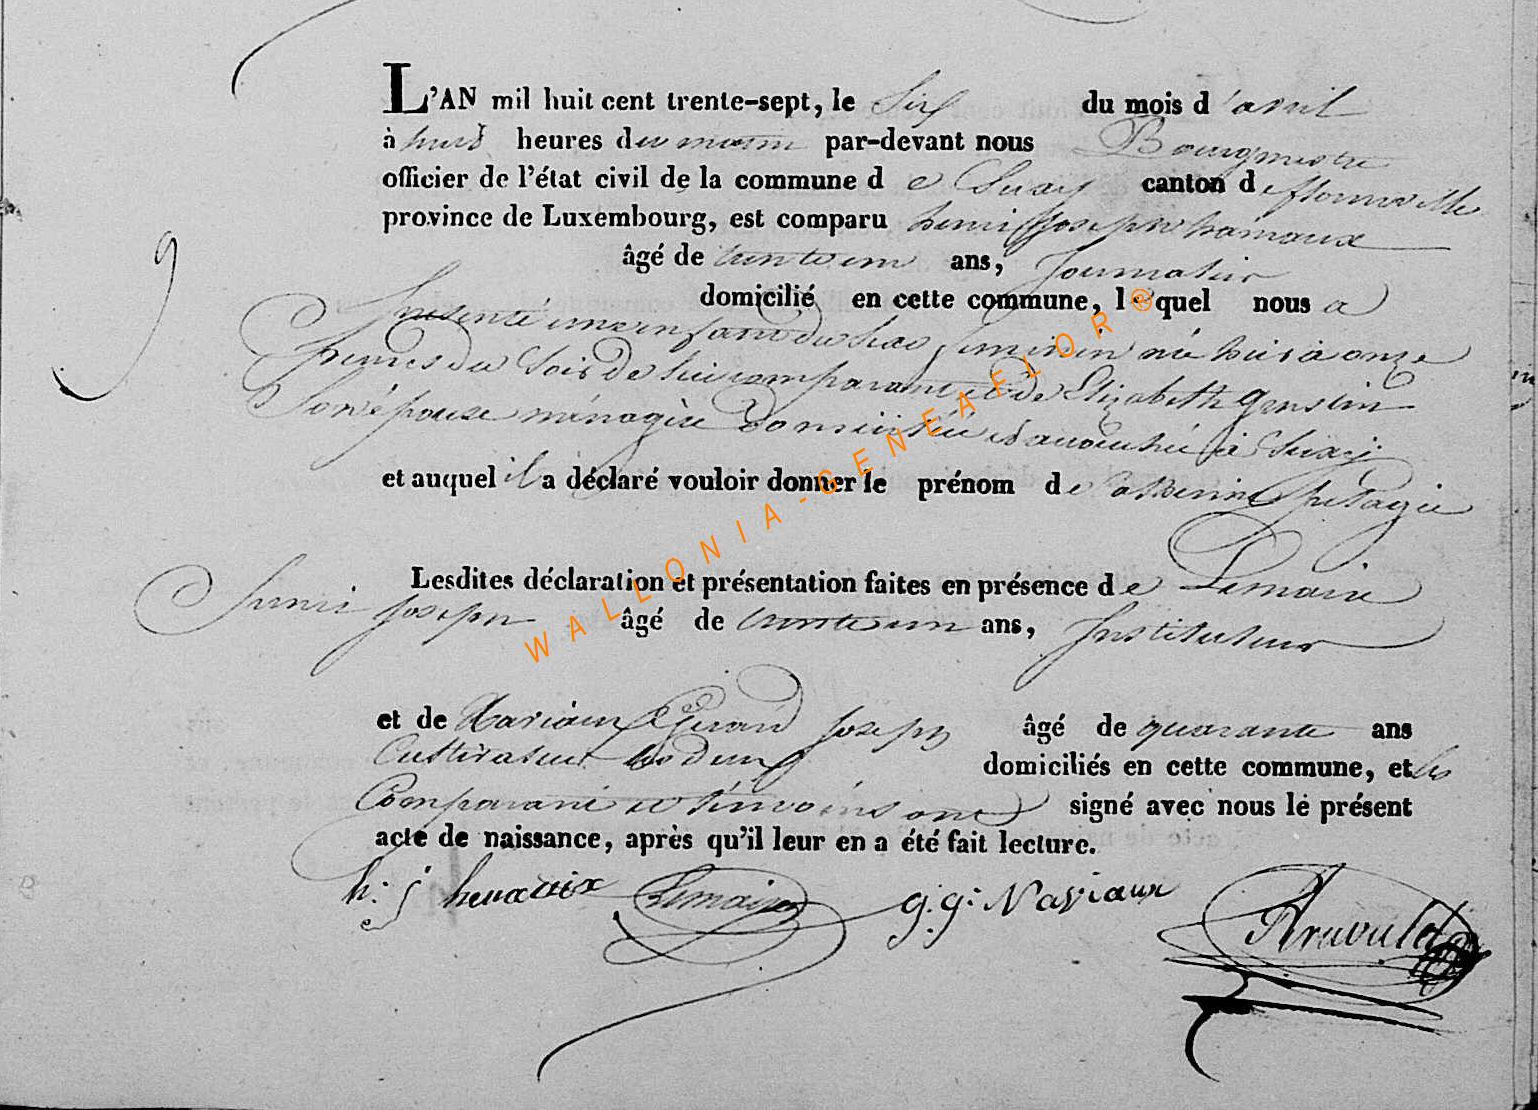 L'AN mil huit cent trente-sept, le Six du mois d'avril
à huit heures du matin par-devant nous Bourgmestre
officier de l'état civil de la commune de Suxy canton de florenville
province de Luxembourg, est comparu henri Joseph hamaux
âgé de trente un ans, Journalier
domicilié en cette commune, lequel nous a
présenté un enfant du Sexe feminin né hier à onze
heures du Soir de lui comparant et de Elizabeth
Son épouse ménagère domiciliée et accouchée à Suxy
et auquel il a déclaré vouloir donner le prénom de Catherine pélagie
Lesdites déclaration et présentation faites en présence de Lemaire
henri Joseph âgé de trente un ans, Instituteur
et de Naviaux Gérard Joseph âgé de quarante ans
Cultivateur domiciliés en cette commune, et les
Comparant et témoins ont signé avec nous le présent
acte de naissance, après qu'il leur en a été fait lecture.
h. J Lemaire g. g. Naviaux
Arnould
9
WALLONIA-GENEAFLOR®